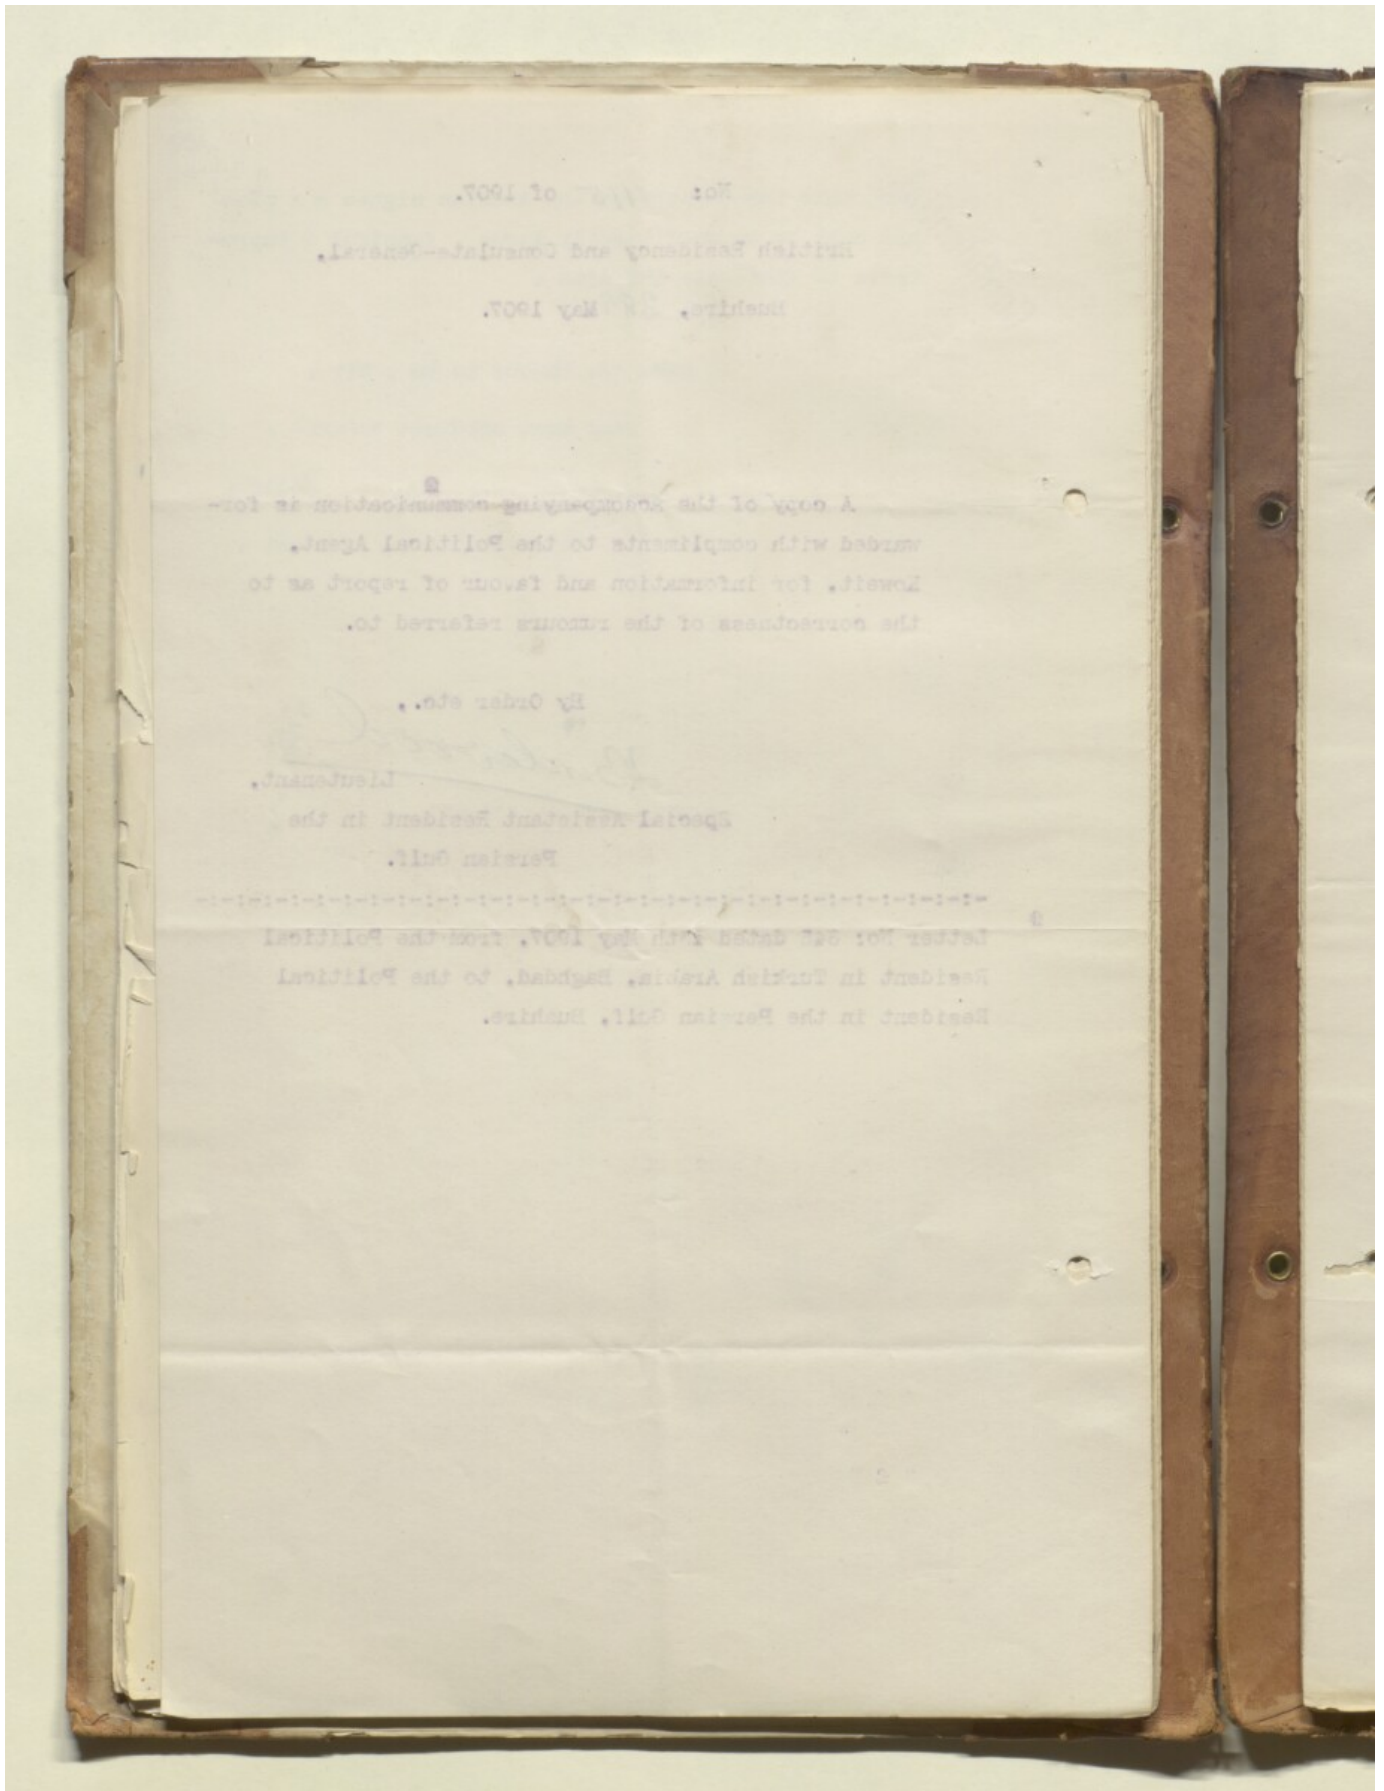 No: of 1907.
British Residency and Consulate-General,
Bushire, May 1907.
A copy of the accompanying communication is for-
warded with compliments to the Political Agent,
Koweit, for information and favour of report as to
the correctness of the rumours referred to.
By Order etc.,
Lieutenant,
Special Assistant Resident in the
Persian Gulf.
-:-:-:-:-:-:-:-:-:-:-:-:-:-:-:-:-:-:-:-:-:-:-:-:-:-:-:-:-:-
Letter No: dated May 1907, from the Political
Resident in Turkish Arabia, Baghdad, to the Political
Resident in the Persian Gulf, Bushire.